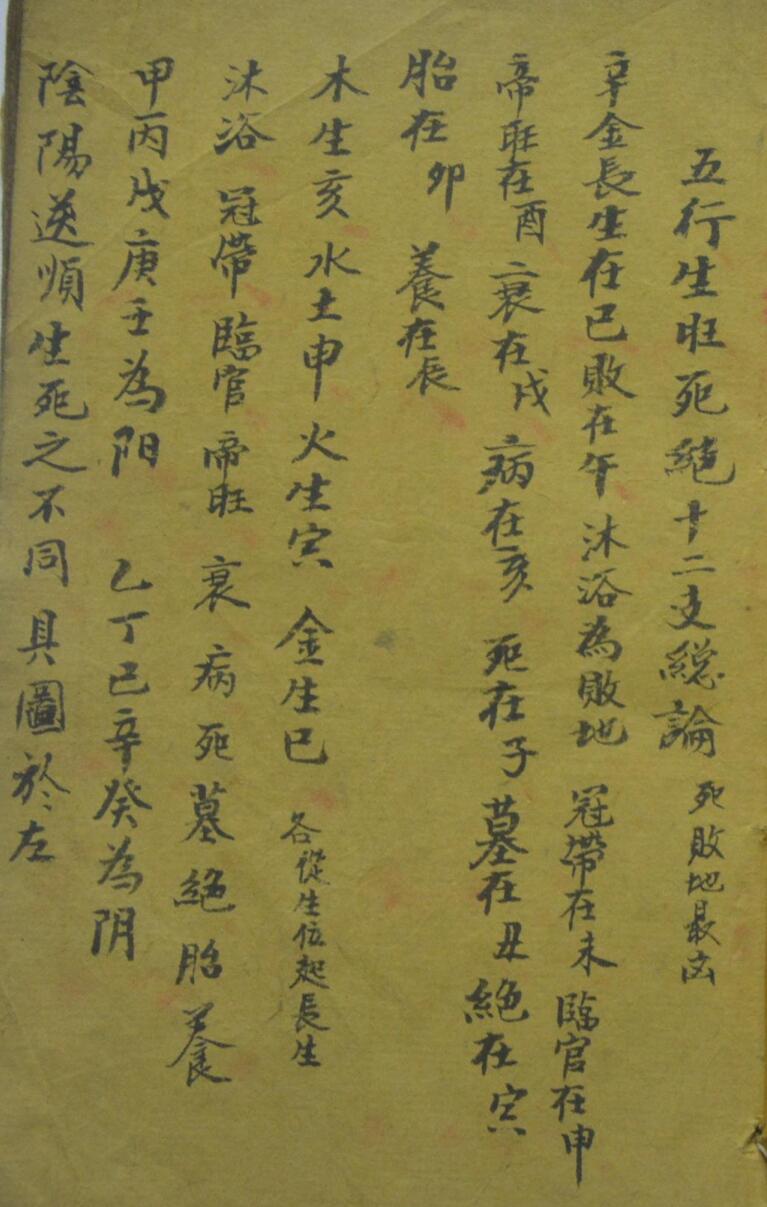 五行生旺死絶十二支總論 死敗地最凶
辛金長生在巳敗在午沐浴為敗地 冠帶在未臨官在申
帝旺在酉 衰在戌 病在亥 死在子 墓在丑絕在寅
胎在卯 養在辰
木生亥水土申火生寅 金生巳 各從生位起長生
沐浴 冠帶臨官帝旺 衰病死墓絕胎養
甲丙戊庚壬為阳 乙丁己辛癸為阴
陰陽逆順生死之不同 具圖於左